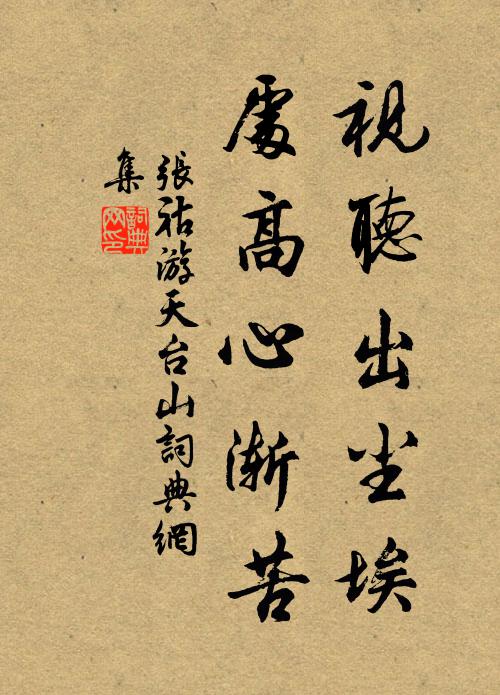 視聽出尘埃
處高心漸苦
張祜游天台山詞典網
集
詞典
网印